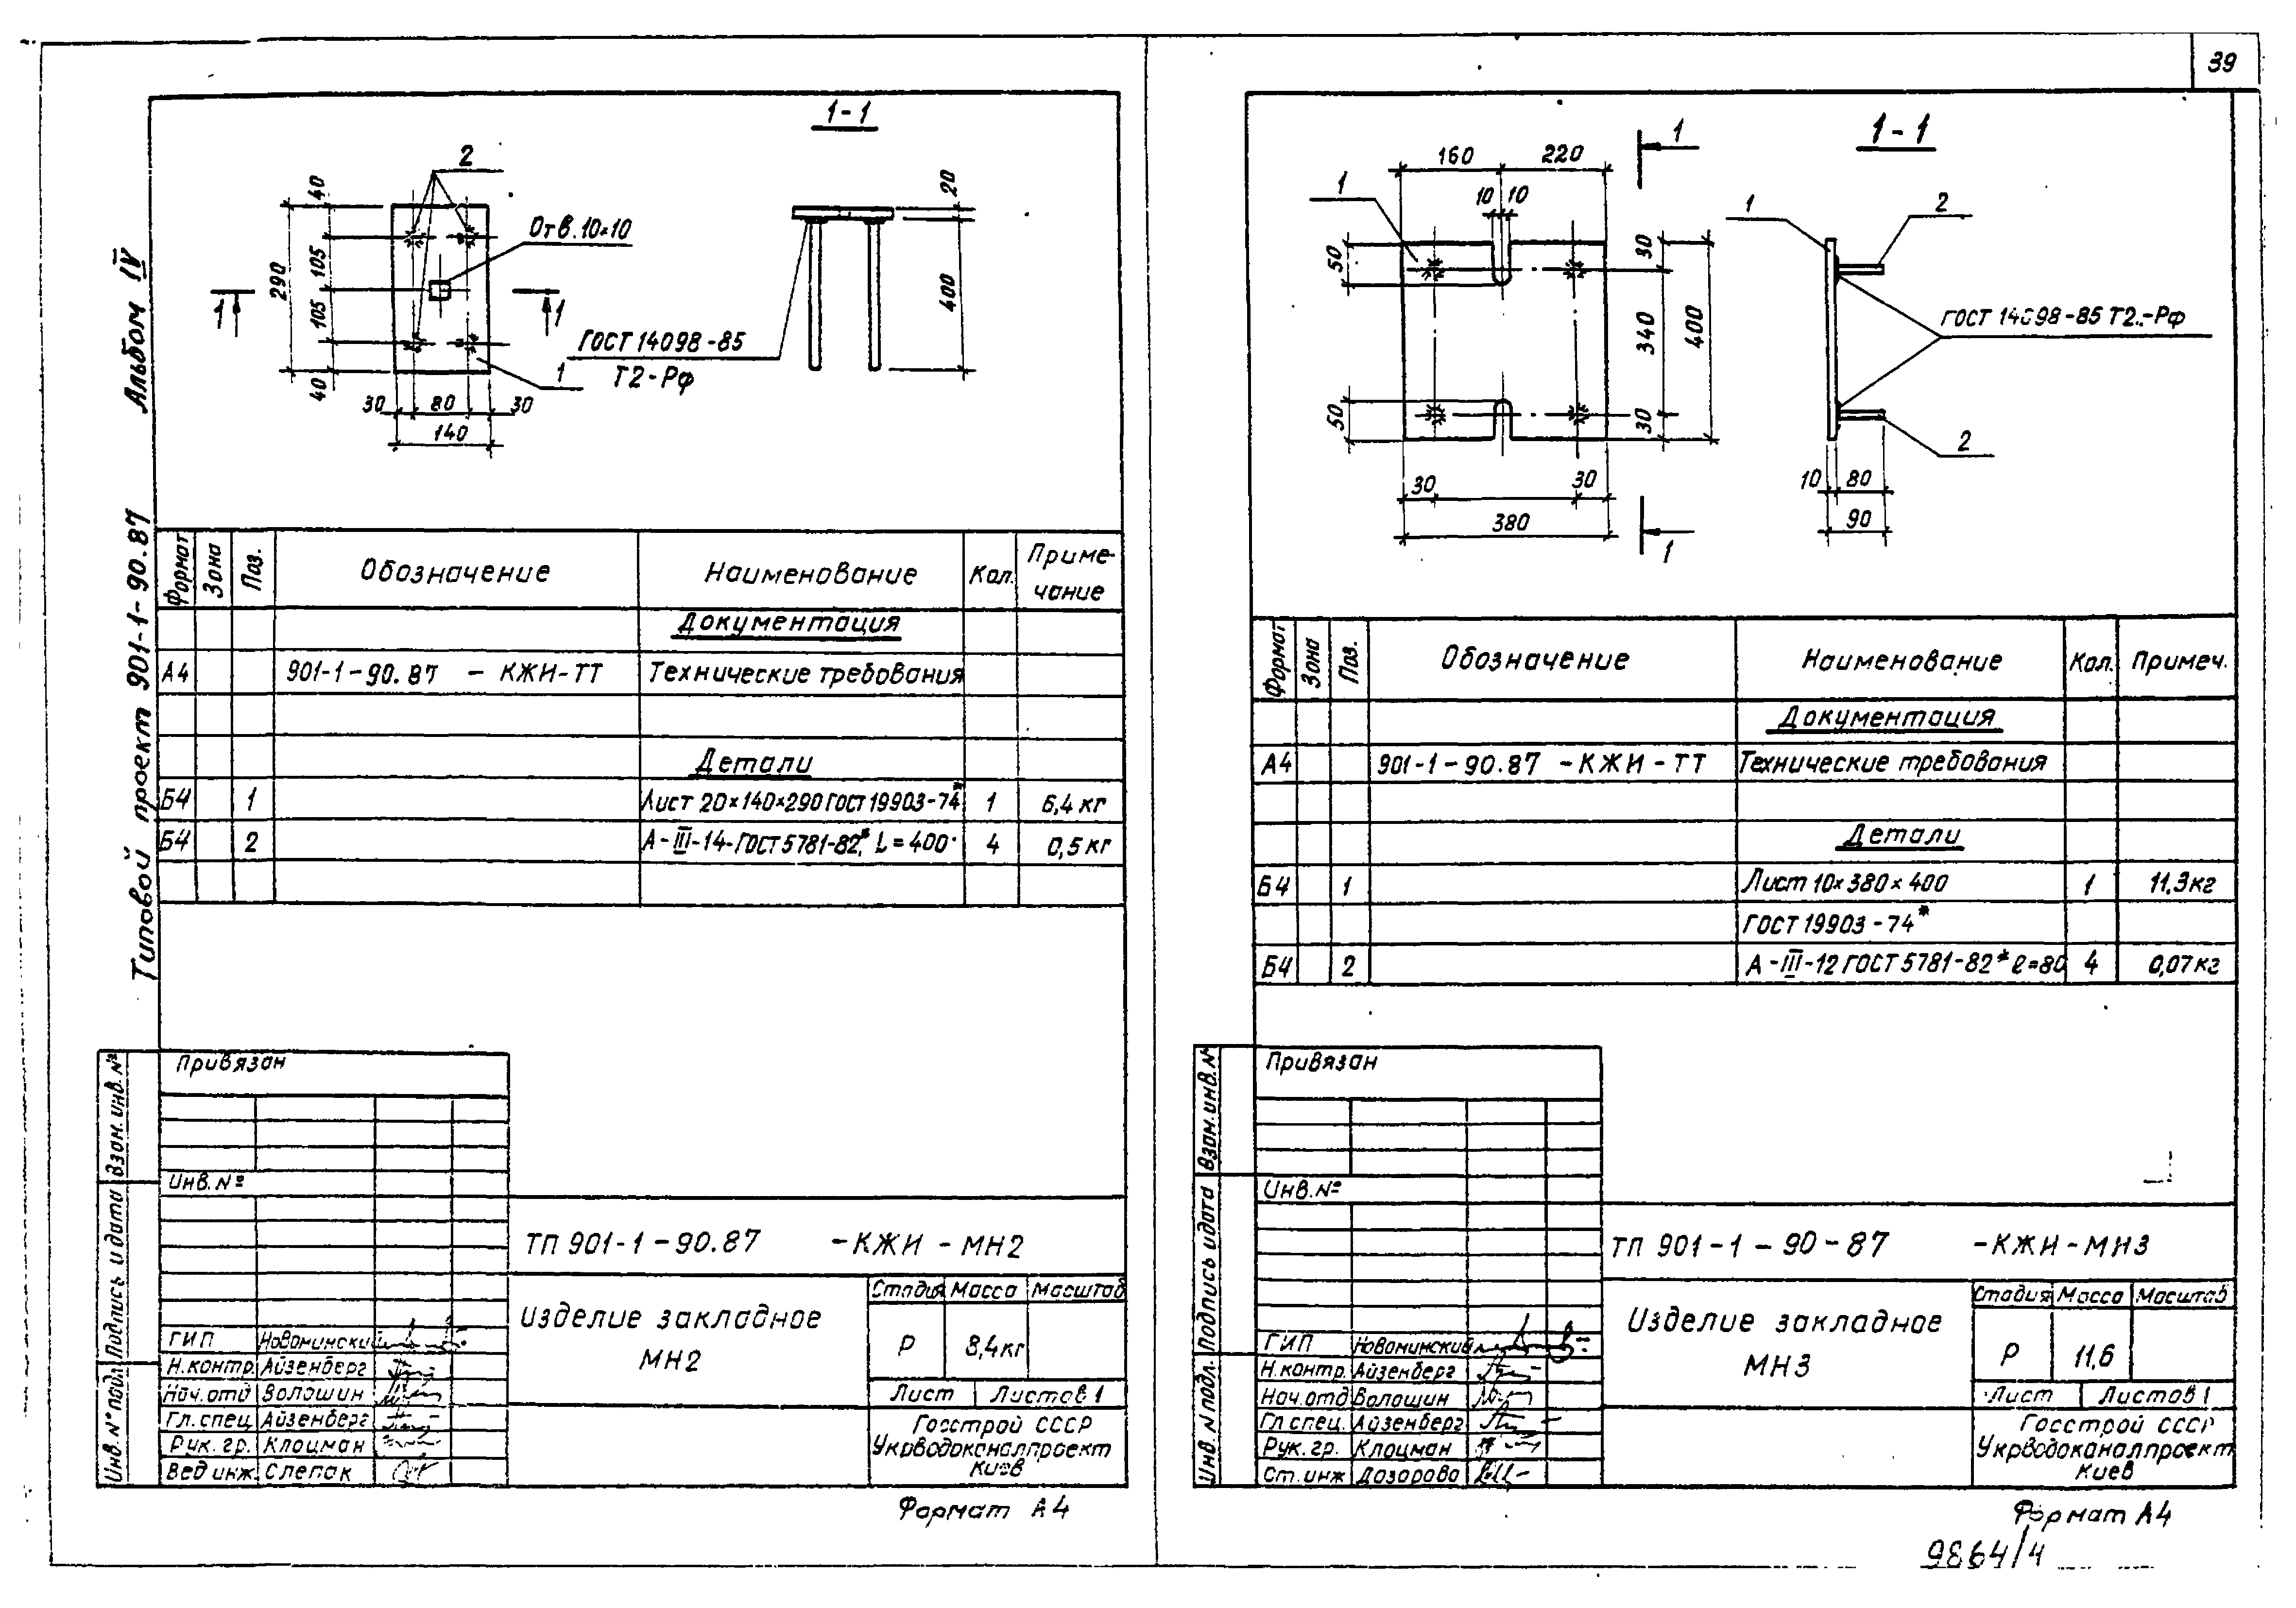 39
Альбом IV
Типовой проект 901-1-90.87
1-1
2
40
105
290
105
40
Отв.10×10
1
1
1
ГОСТ 14098-85
Т2-Рф
30 80 30
140
20
400
Формат Зона Поз. Обозначение Наименование Кол. Приме-
чание
Документация
А4 901-1-90.87 - КЖИ-ТТ Технические требования
Детали
Б4 1 Лист 20×140×290 ГОСТ 19903-74* 1 6,4 кг
Б4 2 А-III-14-ГОСТ 5781-82*, L=400 4 0,5 кг
Привязан
Инв.№
Взам. инв. №
Подпись и дата
Инв. № подл.
ТП 901-1-90.87 -КЖИ - МН2
Изделие закладное
МН2
Стадия Масса Масштаб
Р 8,4кг
Лист Листов 1
Госстрой СССР
Укрводоканалпроект
Киев
ГИП Новоминский
Н.контр. Айзенберг
Нач.отд Волошин
Гл.спец Айзенберг
Рук. гр. Клоцман
Вед инж. Слепак
Формат А4
1-1
160 220
1
10 10
1
50
50
30
340
30
400
30 30
380
1
1
2
ГОСТ 14098-85 Т2-Рф
2
10 80
90
Формат Зона Поз. Обозначение Наименование Кол. Примеч.
Документация
А4 901-1-90.87 -КЖИ-ТТ Технические требования
Детали
Б4 1 Лист 10×380×400 1 11,3кг
ГОСТ 19903-74*
Б4 2 А-III-12 ГОСТ 5781-82* ℓ=80 4 0,07кг
Привязан
Инв.№
Взам. инв. №
Подпись и дата
Инв. № подл.
ТП 901-1-90-87 -КЖИ-МН3
Изделие закладное
МН3
Стадия Масса Масштаб
Р 11,6
Лист Листов 1
Госстрой СССР
Укрводоканалпроект
Киев
ГИП Новоминский
Н.контр. Айзенберг
Нач.отд Волошин
Гл.спец. Айзенберг
Рук. гр. Клоцман
Ст.инж Дозорова
Формат А4
9864/4